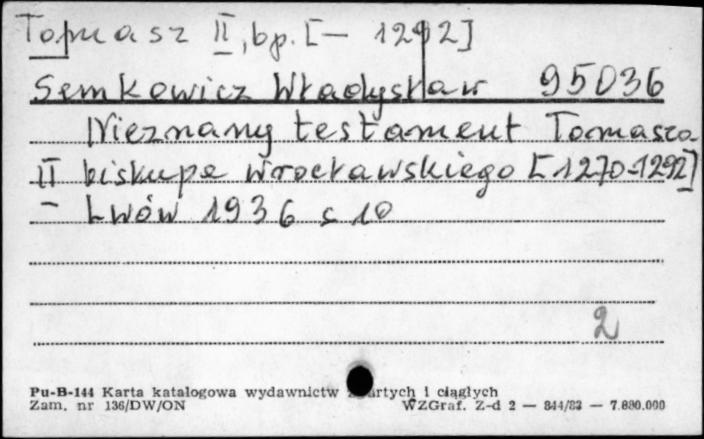 Tomasz II, bp. [— 1292]
Semkowicz Władysław 95036
Nieznany testament Tomasza
II biskupa wrocławskiego [1270-1292]
— Lwów 1936 s 10
2
Pu-B-144 Karta katalogowa wydawnictw zwartych i ciągłych
Zam. nr 136/DW/ON WZGraf. Z-d 2 — 844/83 — 7.880.000